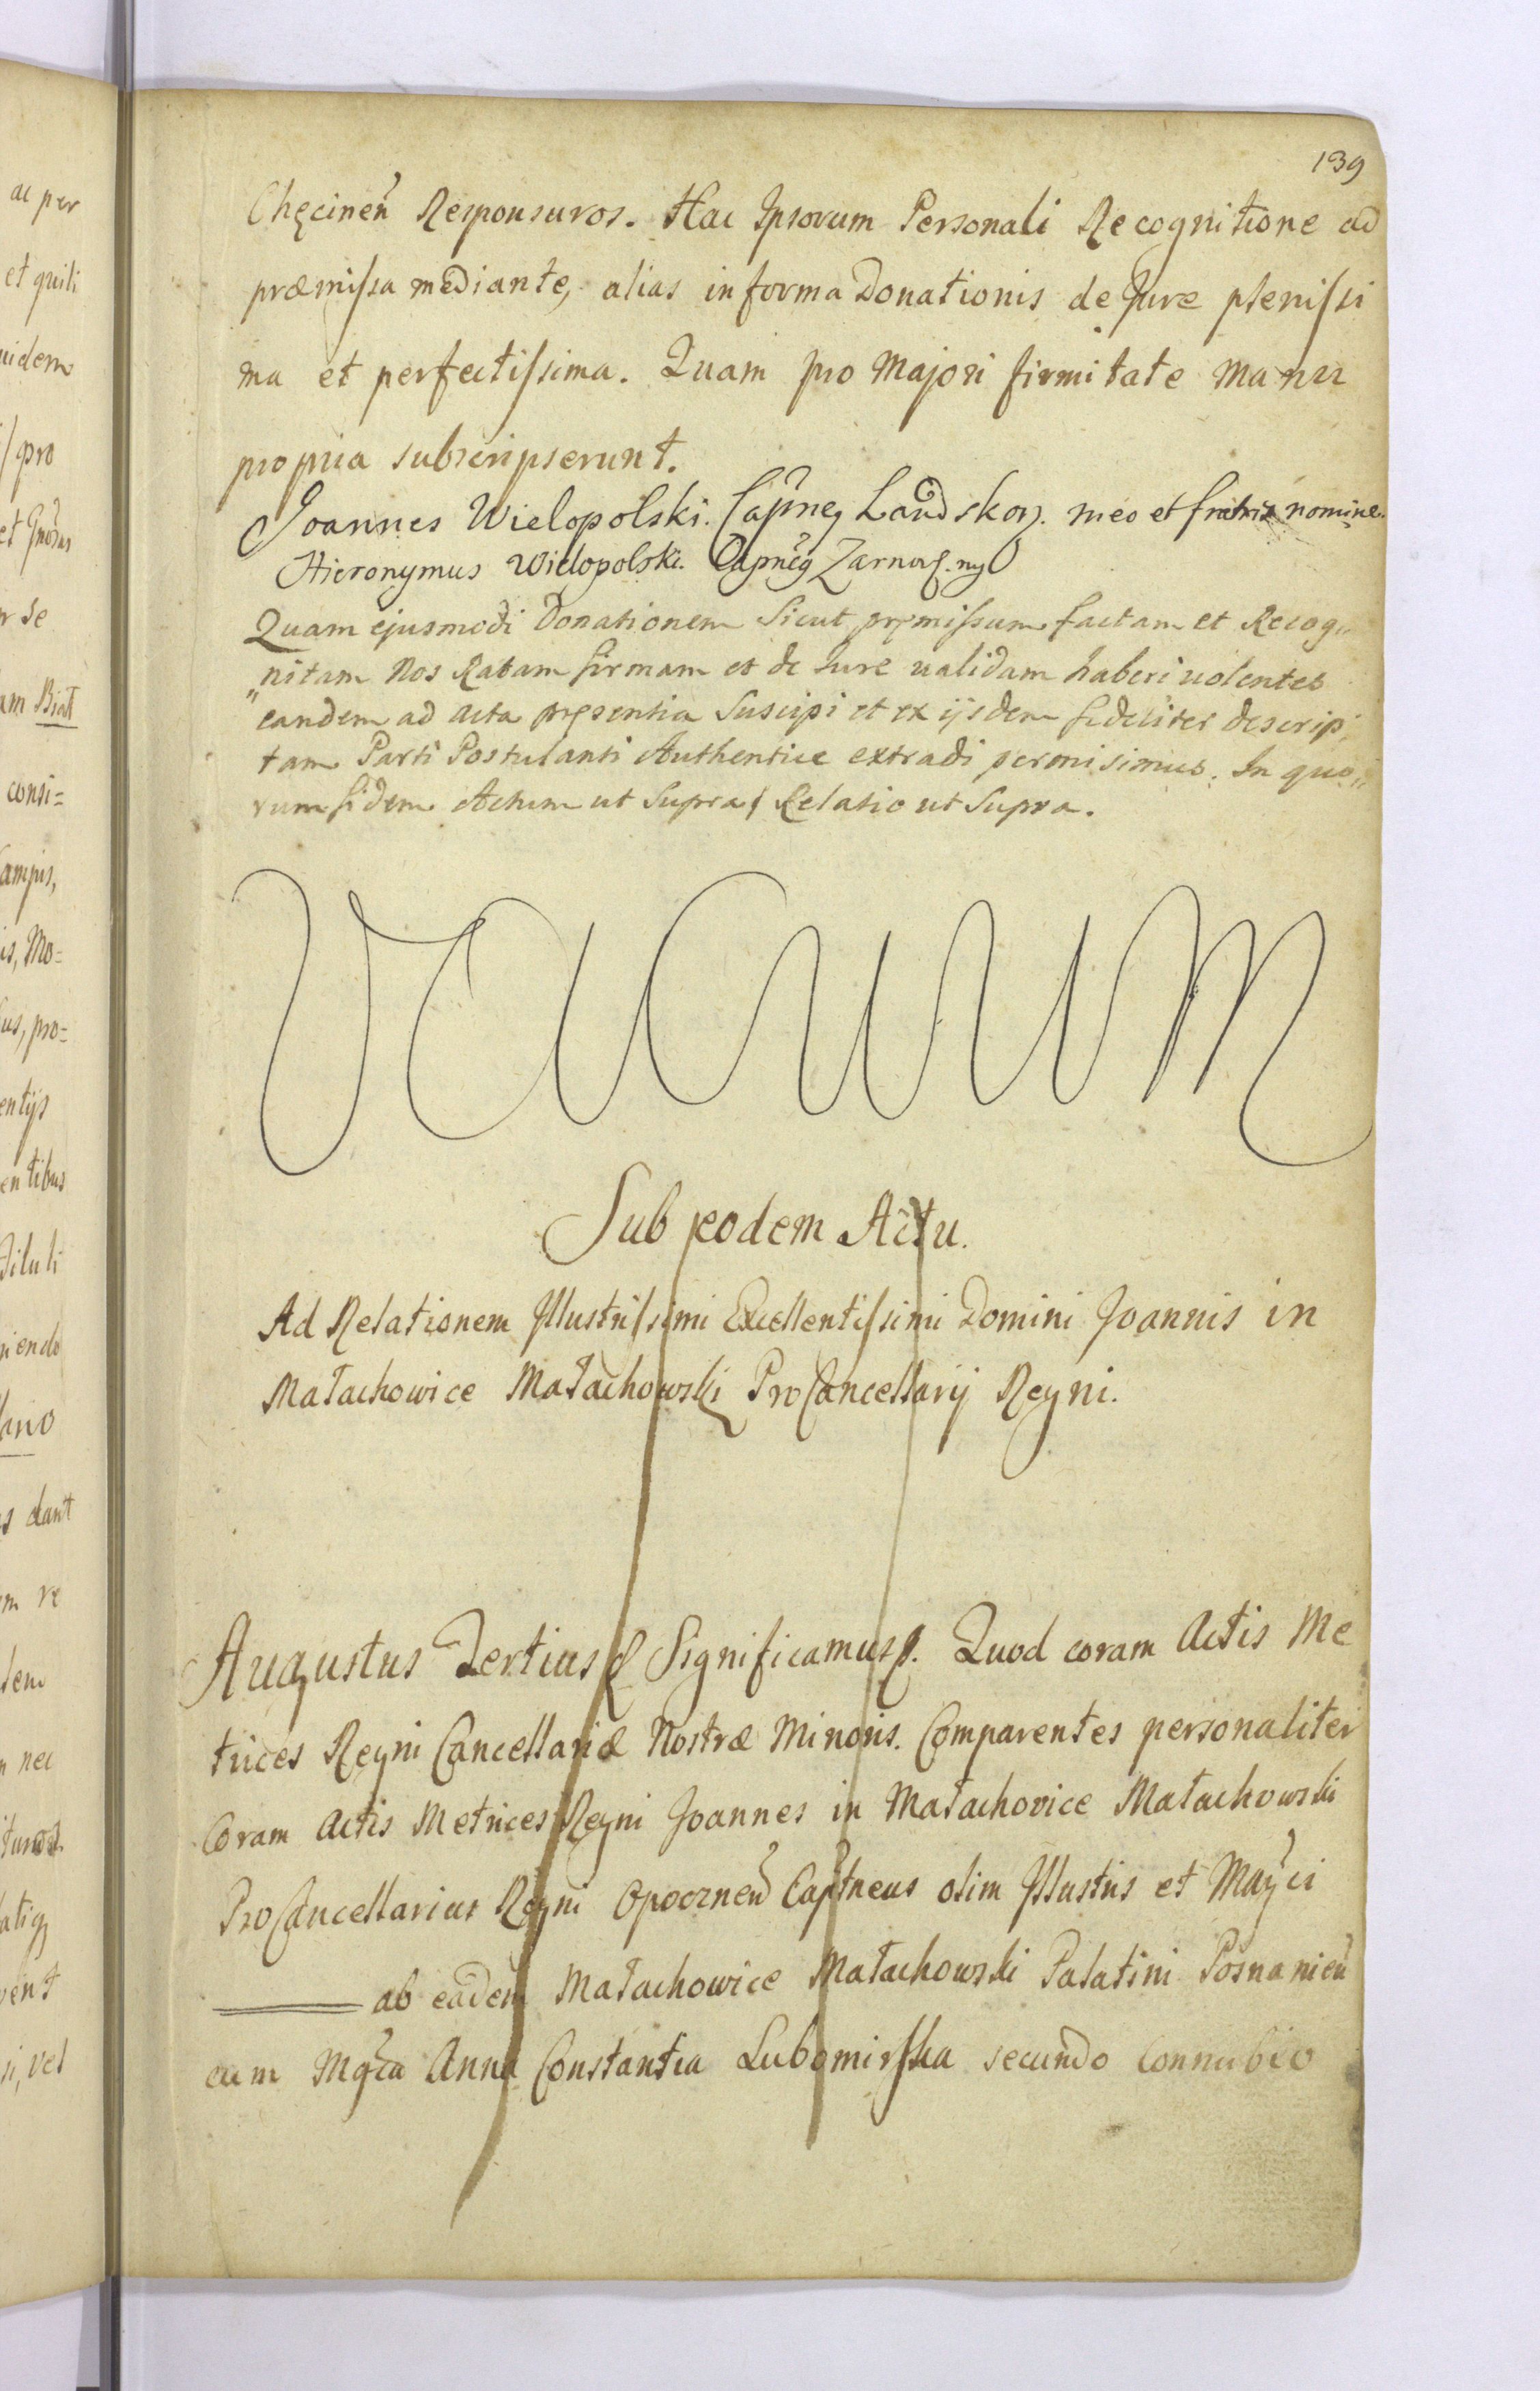 139
Chęcineñ Responsuros. Hac Ipsorum Personali Recognitione ad
præmissa mediante, alias in forma Donationis de Jure plenissi
ma et perfectissima. Quam pro Majori firmitate manu
propria subscripserunt.
Joannes Wielopolski. Capneg Landskor. meo et fratris nomine.
Hieronymus Wielopolski. Capneg Zarnov.
Quam ejusmodi Donationem Sicut pręmissum factam et Recog„
„nitam Nos Ratam firmam et de Jure validam haberi volentes
eandem ad acta pręsentia Suscipi et ex ijsdem fideliter descrip„
tam Parti Postulanti Authentice extradi permisimus. In quo„
rum fidem Actum ut Supra / Relatio ut Supra.
Vacuum
Sub eodem Actu.
Ad Relationem Illustrissimi Excellentissimi Domini Joannis in
Małachowice Małachowski ProCancellarij Regni.
Augustus Tertius Significamus. Quod coram Actis Me
trices Regni Cancellariæ Nostræ Minoris. Comparentes personaliter
Coram Actis Metrices Regni Joannes in Małachovice Małachowski
ProCancellarius Regni Opocznen Captneus olim Illustris et Magci
ab eadem Małachowice Małachowski Palatini Posnanien
cum Mgca Anna Constantia Lubomirska secundo Connubio
ac per
et quili
uidem
pro
et
r se
am Biat
consi=
Campis,
is, Mo=
sus, pro=
entijs
entibus
Diluli
niendo
s dant
m re
dem
n nec
vent
si, vel